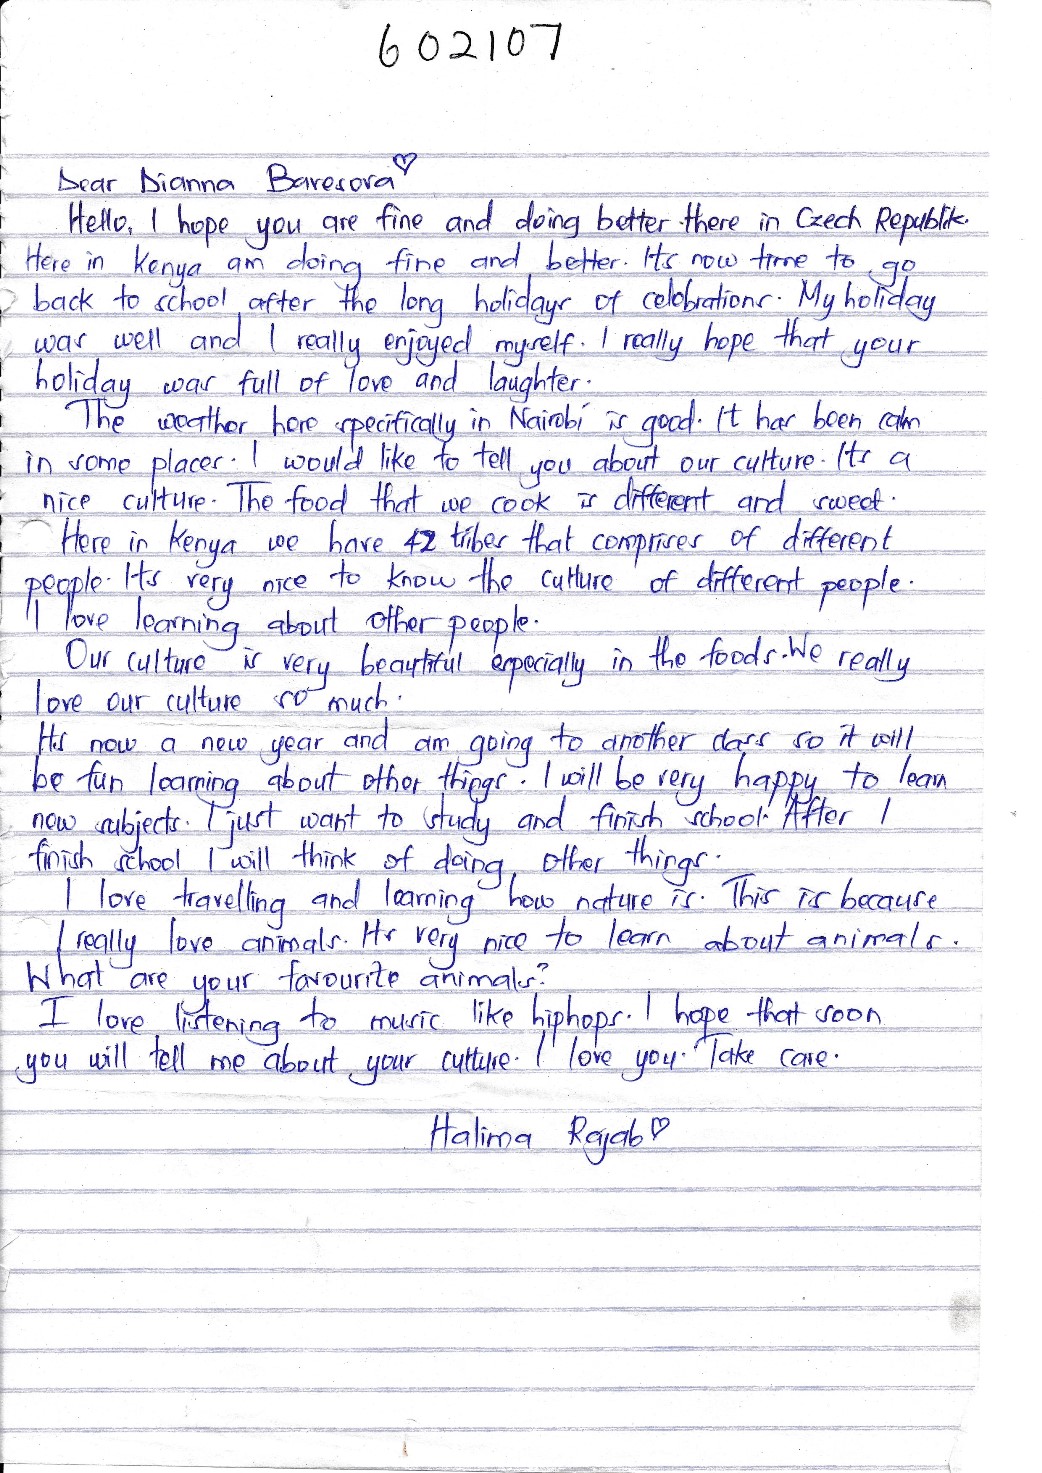 602107
Dear Dianna Baresova♡
Hello, I hope you are fine and doing better there in Czech Republik.
Here in Kenya am doing fine and better. Its now time to go
back to school after the long holidays of celebrations. My holiday
was well and I really enjoyed myself. I really hope that your
holiday was full of love and laughter.
The weather here specifically in Nairobi is good. It has been calm
in some places. I would like to tell you about our culture. Its a
nice culture. The food that we cook is different and sweet.
Here in Kenya we have 42 tribes that comprises of different
people. Its very nice to know the culture of different people.
I love learning about other people.
Our culture is very beautiful especially in the foods. We really
love our culture so much.
Its now a new year and am going to another class so it will
be fun learning about other things. I will be very happy to learn
new subjects. I just want to study and finish school. After I
finish school I will think of doing other things.
I love travelling and learning how nature is. This is because
I really love animals. Its very nice to learn about animals.
What are your favourite animals?
I love listening to music like hiphops. I hope that soon
you will tell me about your culture. I love you. Take care.
Halima Rajab♡